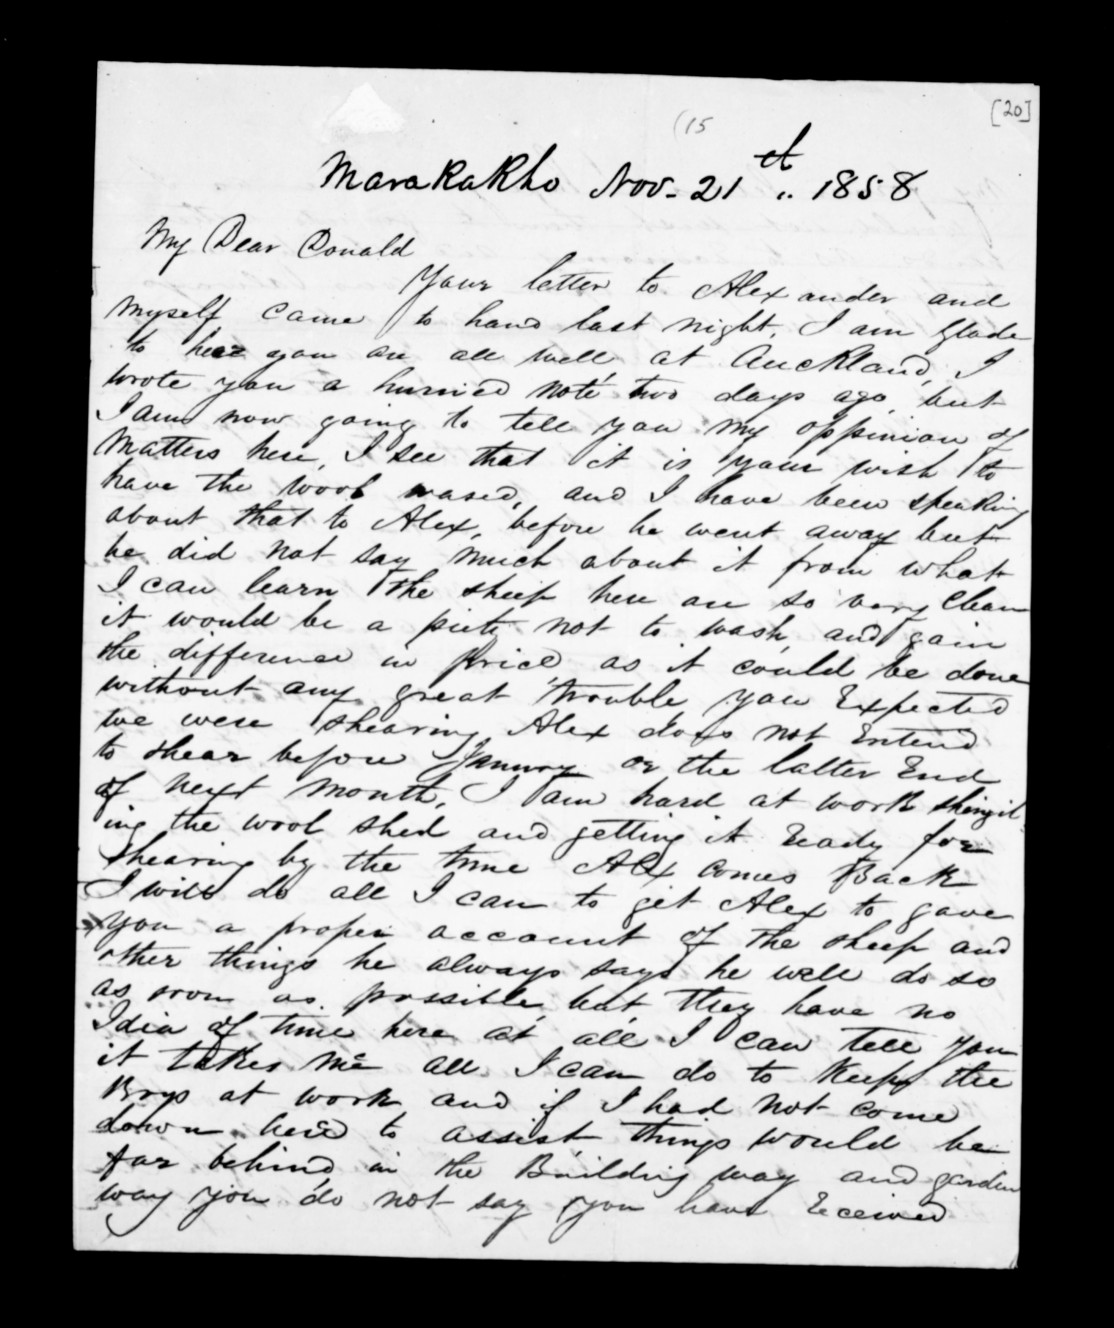 [20]
(15
Marakakho Nov. 21st .. 1858
My Dear Donald
Your letter to Alexander and
myself came to hand last night, I am glade
to hear you are all well at Auckland, I
wrote you a hurried note two days ago, but
I am now going to tell you my oppinion of
Matters here, I see that it is your wish to
have the wool wased, and I have been speaking
about that to Alex, before he went away but
he did not say much about it from what
I can learn the sheep here are so very Clean
it would be a piety not to wash, and gain
the difference in price, as it could be done
without any great trouble you Expected
we were shearing Alex does not Entend
to shear before January or the latter End
of next Month, I am hard at work shingil
ing the wool shed and getting it Ready for
shearing by the time Alex comes Back
I will do all I can to get Alex to gave
you a proper account of the sheep and
other things he always says he well do so
as soon as possible, but, they have no
Idia of time here at all I can tell you
it takes me all I can do to Keep the
Boys at work and if I had not come
down here to assist things would be
far behind in the Building way and garden
way you do not say you have Received